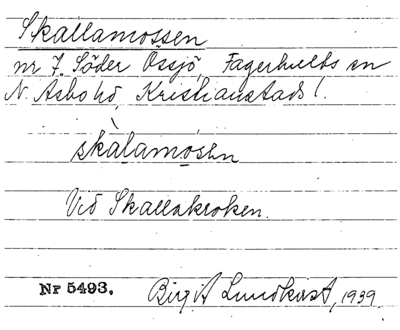 Skallamossen
nr 7. Söder Össjö, Fagerhults sn
N. Åsbo hd, Kristianstads l.
skàlamósen
Vid Skallakroken.
Nr 5493. Birgit Lundkvist, 1939.